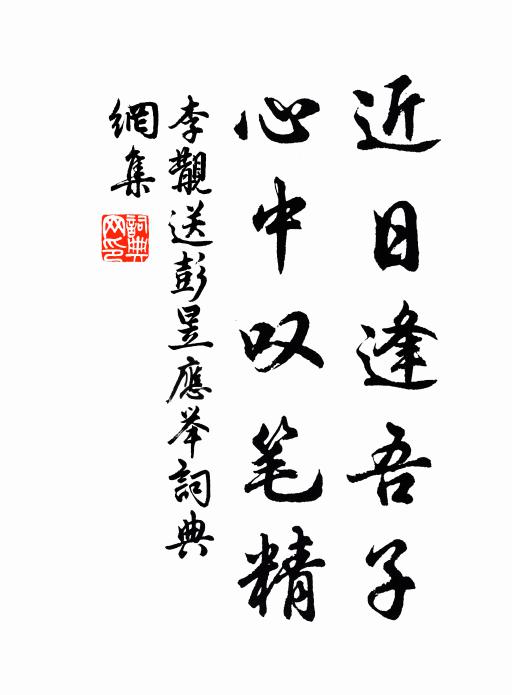 近日逢吾子
心中叹笔精
李觏送彭昱應举詞典
網集
詞典
网印